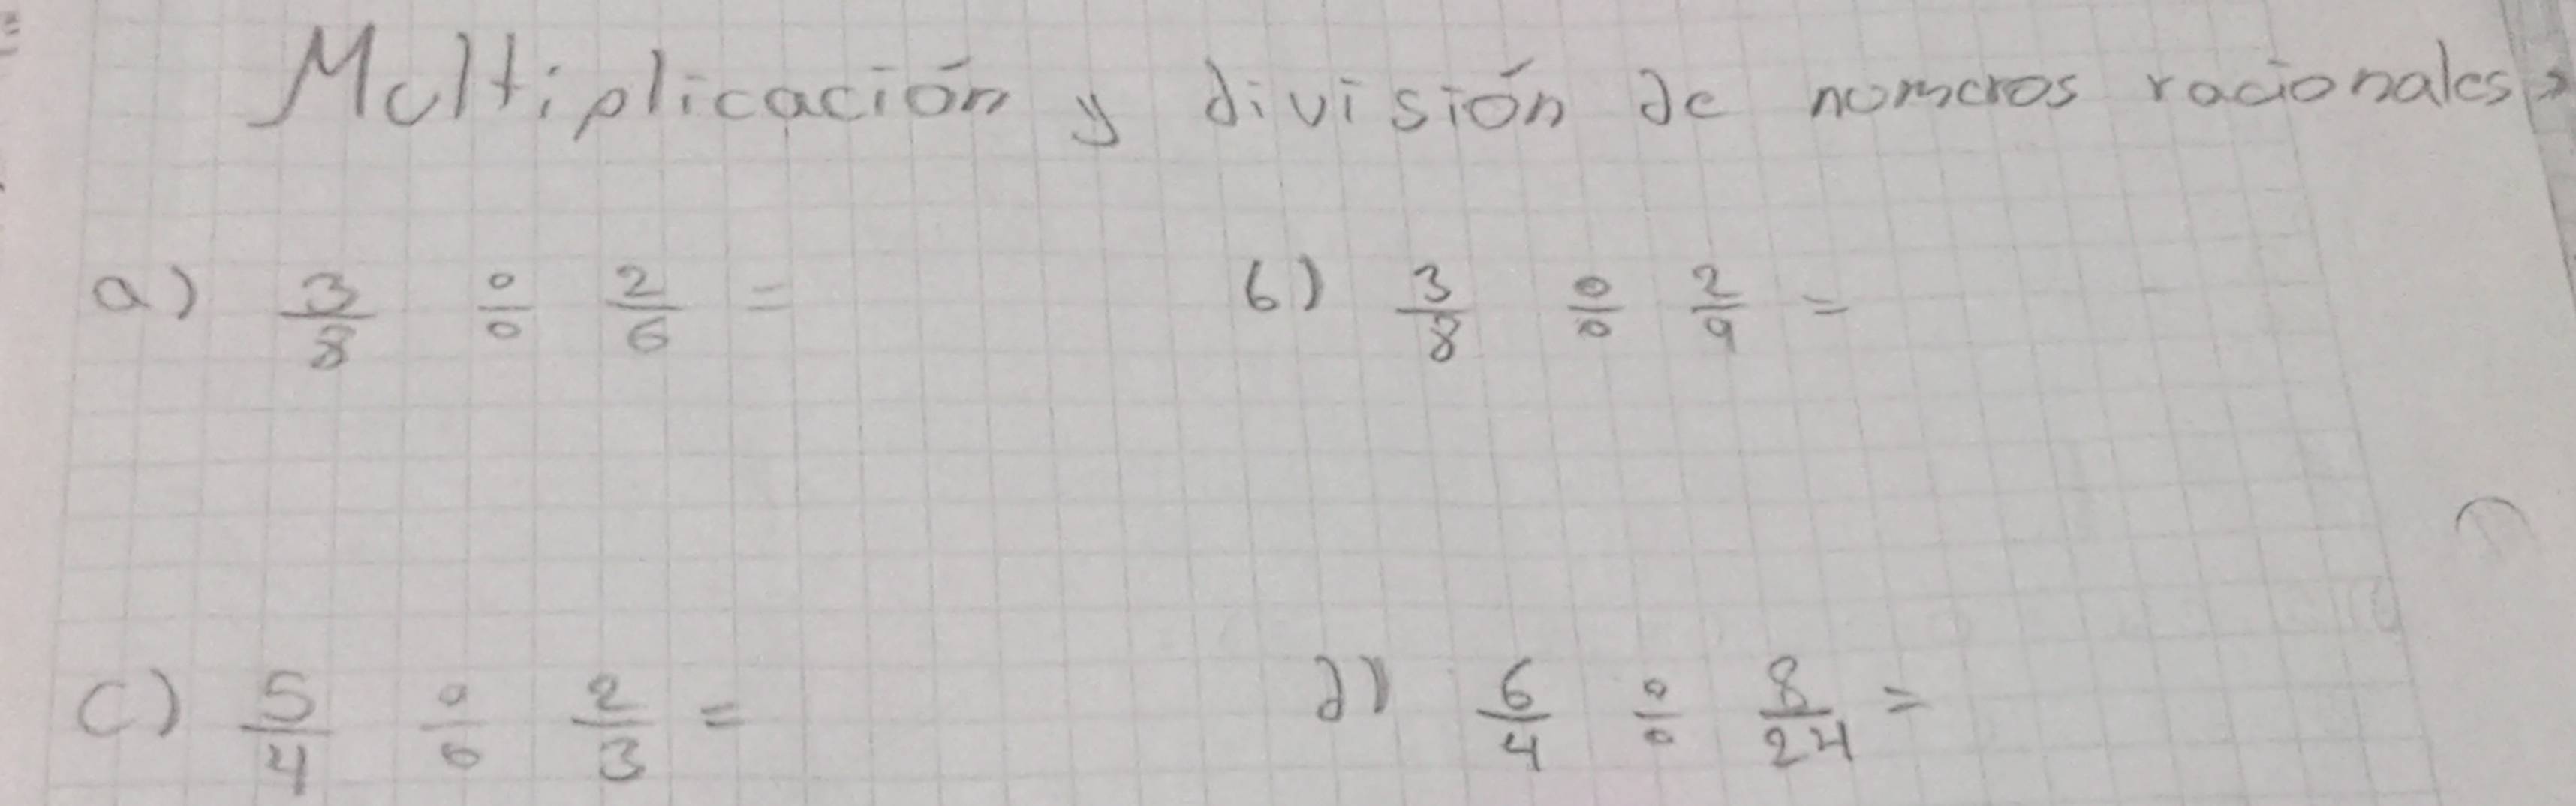 Multiplicación y división de numeros racionales
a) 3/8 ÷ 2/6 = b) 3/8 ÷ 2/9 =
c) 5/4 ÷ 2/3 = d) 6/4 ÷ 8/24 =